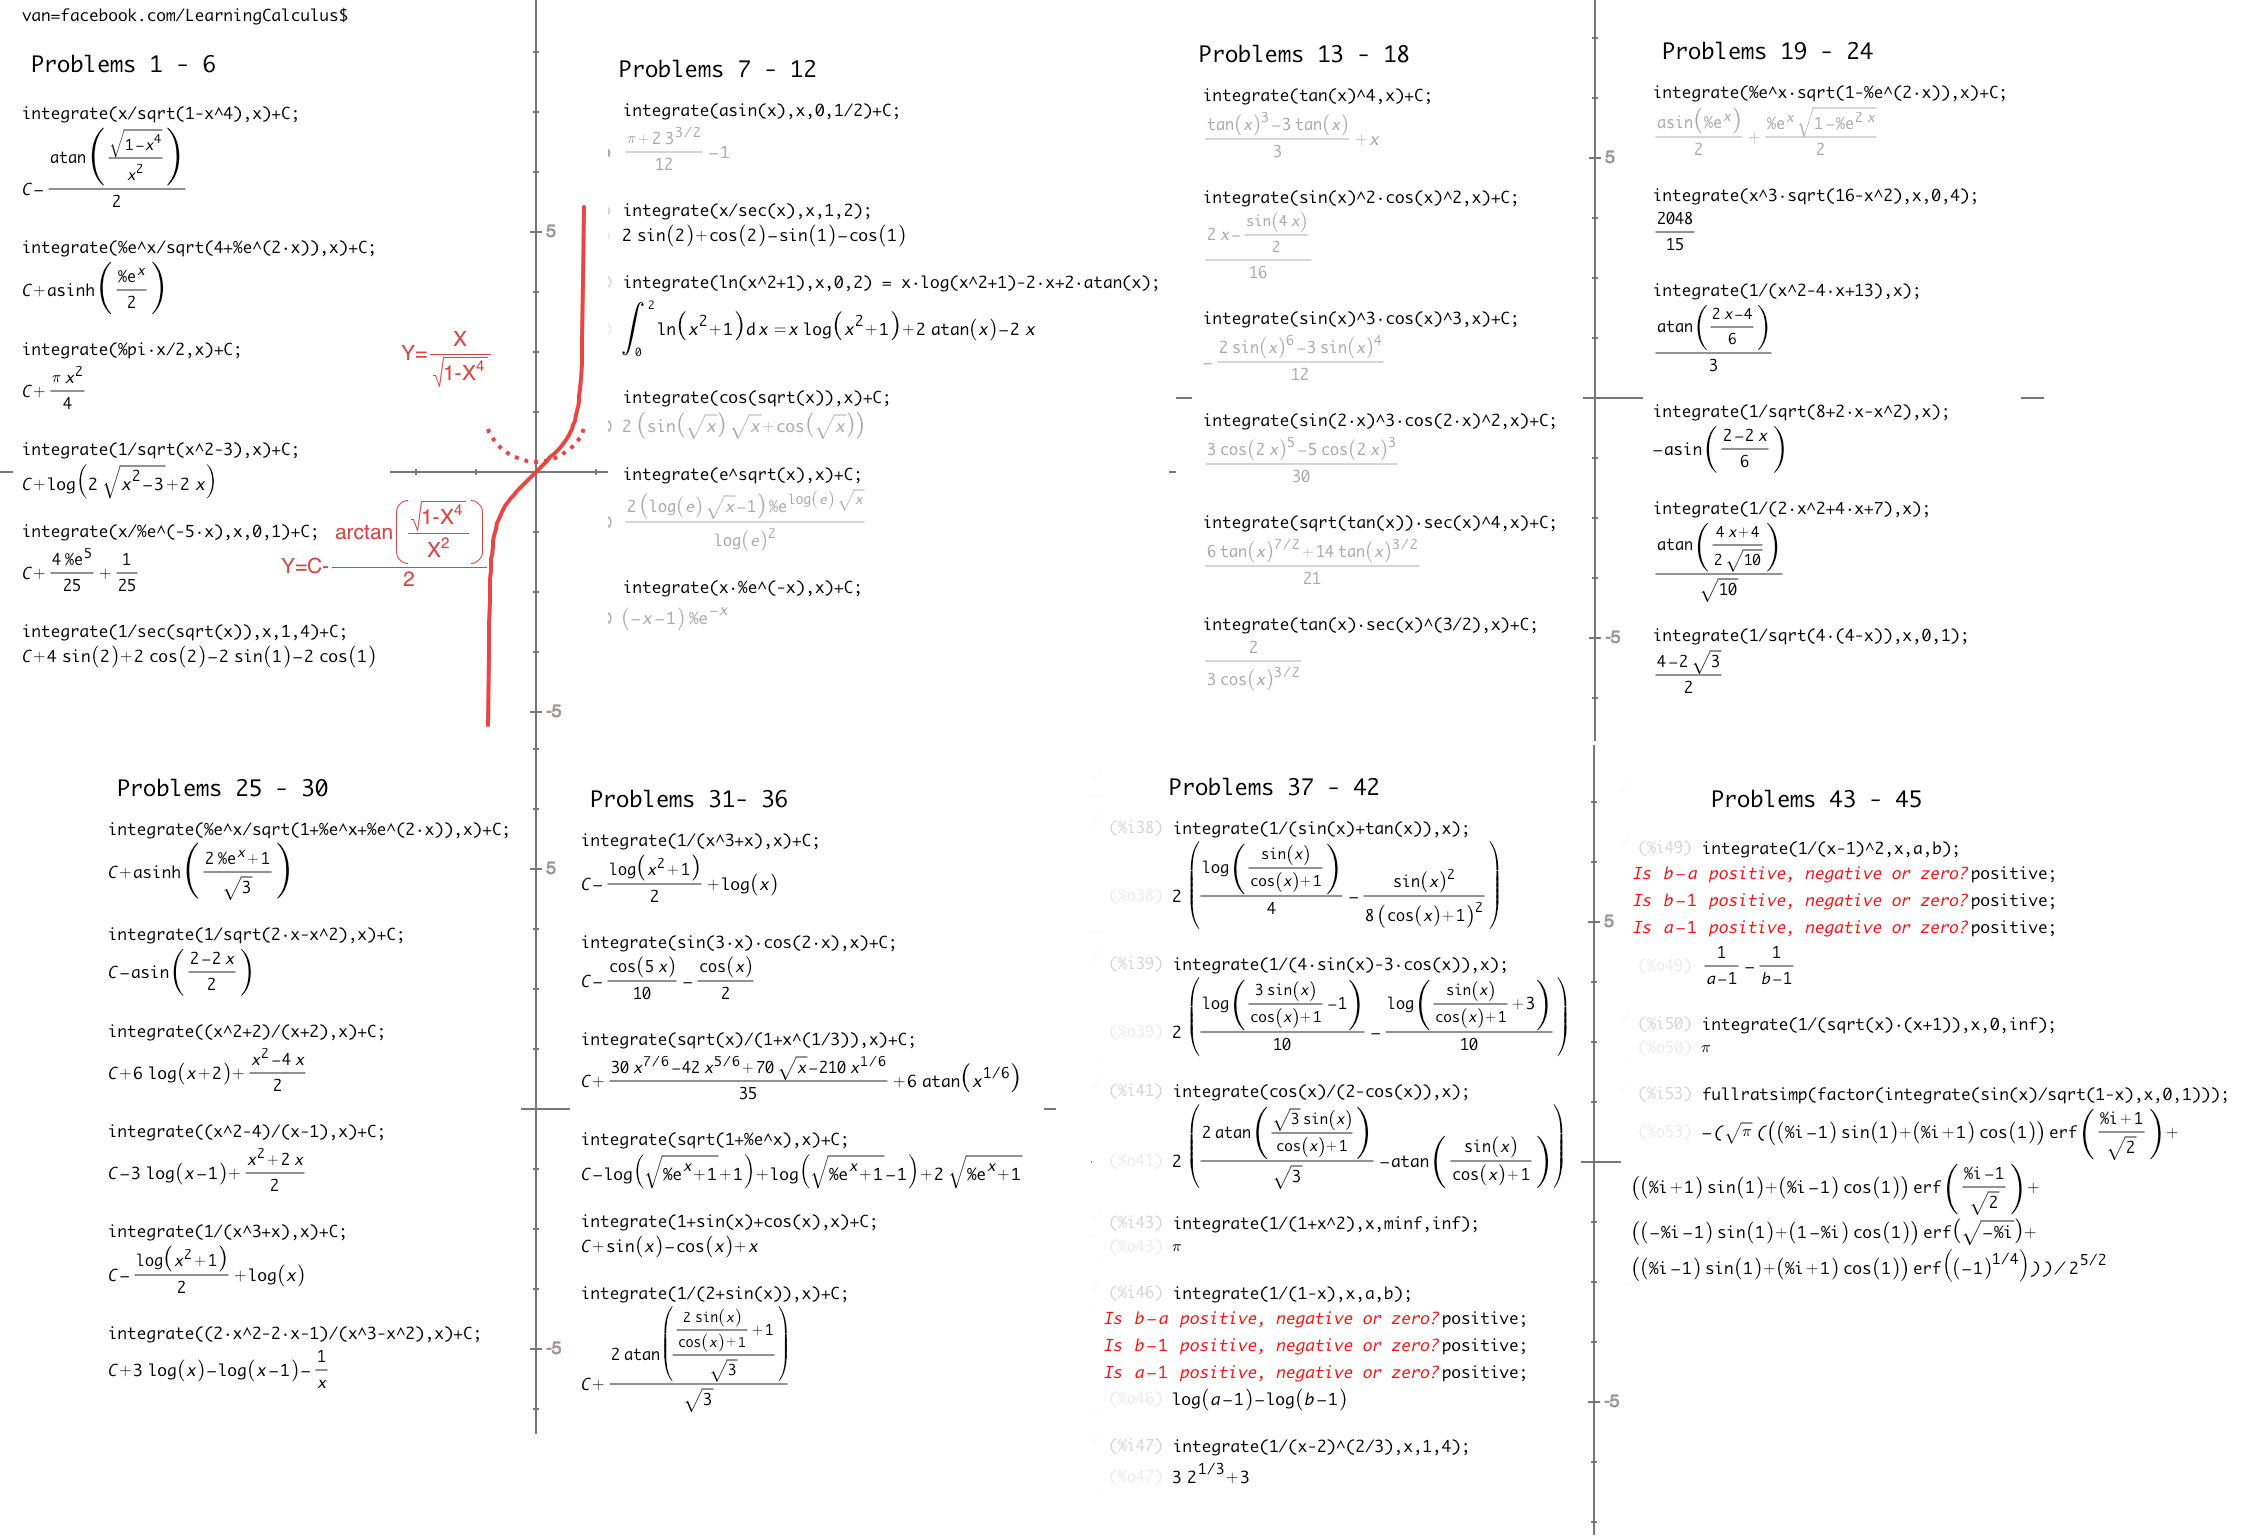 van=facebook.com/LearningCalculus$
Problems 1 - 6
integrate(x/sqrt(1-x^4),x)+C;
C-atan(√(1-x⁴)/x²)/2
integrate(%e^x/sqrt(4+%e^(2·x)),x)+C;
C+asinh(%eˣ/2)
integrate(%pi·x/2,x)+C;
C+π x²/4
integrate(1/sqrt(x^2-3),x)+C;
C+log(2 √(x²-3)+2 x)
integrate(x/%e^(-5·x),x,0,1)+C;
C+4 %e⁵/25+1/25
integrate(1/sec(sqrt(x)),x,1,4)+C;
C+4 sin(2)+2 cos(2)-2 sin(1)-2 cos(1)
Y=X/√(1-X⁴)
Y=C-arctan(√(1-X⁴)/X²)/2
5
-5
Problems 7 - 12
integrate(asin(x),x,0,1/2)+C;
(π+2 3^(3/2))/12-1
integrate(x/sec(x),x,1,2);
2 sin(2)+cos(2)-sin(1)-cos(1)
integrate(ln(x^2+1),x,0,2) = x·log(x^2+1)-2·x+2·atan(x);
∫₀² ln(x²+1)dx=x log(x²+1)+2 atan(x)-2 x
integrate(cos(sqrt(x)),x)+C;
2(sin(√x)√x+cos(√x))
integrate(e^sqrt(x),x)+C;
2(log(e)√x-1)%e^(log(e)√x)/log(e)²
integrate(x·%e^(-x),x)+C;
(-x-1)%e^(-x)
Problems 13 - 18
integrate(tan(x)^4,x)+C;
(tan(x)³-3 tan(x))/3+x
integrate(sin(x)^2·cos(x)^2,x)+C;
(2 x-sin(4 x)/2)/16
integrate(sin(x)^3·cos(x)^3,x)+C;
-(2 sin(x)⁶-3 sin(x)⁴)/12
integrate(sin(2·x)^3·cos(2·x)^2,x)+C;
(3 cos(2 x)⁵-5 cos(2 x)³)/30
integrate(sqrt(tan(x))·sec(x)^4,x)+C;
(6 tan(x)^(7/2)+14 tan(x)^(3/2))/21
integrate(tan(x)·sec(x)^(3/2),x)+C;
2/(3 cos(x)^(3/2))
5
-5
Problems 19 - 24
integrate(%e^x·sqrt(1-%e^(2·x)),x)+C;
asin(%eˣ)/2+%eˣ√(1-%e^(2 x))/2
integrate(x^3·sqrt(16-x^2),x,0,4);
2048/15
integrate(1/(x^2-4·x+13),x);
atan((2 x-4)/6)/3
integrate(1/sqrt(8+2·x-x^2),x);
-asin((2-2 x)/6)
integrate(1/(2·x^2+4·x+7),x);
atan((4 x+4)/(2√10))/√10
integrate(1/sqrt(4·(4-x)),x,0,1);
(4-2√3)/2
Problems 25 - 30
integrate(%e^x/sqrt(1+%e^x+%e^(2·x)),x)+C;
C+asinh((2 %eˣ+1)/√3)
integrate(1/sqrt(2·x-x^2),x)+C;
C-asin((2-2 x)/2)
integrate((x^2+2)/(x+2),x)+C;
C+6 log(x+2)+(x²-4 x)/2
integrate((x^2-4)/(x-1),x)+C;
C-3 log(x-1)+(x²+2 x)/2
integrate(1/(x^3+x),x)+C;
C-log(x²+1)/2+log(x)
integrate((2·x^2-2·x-1)/(x^3-x^2),x)+C;
C+3 log(x)-log(x-1)-1/x
5
-5
Problems 31- 36
integrate(1/(x^3+x),x)+C;
C-log(x²+1)/2+log(x)
integrate(sin(3·x)·cos(2·x),x)+C;
C-cos(5 x)/10-cos(x)/2
integrate(sqrt(x)/(1+x^(1/3)),x)+C;
C+(30 x^(7/6)-42 x^(5/6)+70√x-210 x^(1/6))/35+6 atan(x^(1/6))
integrate(sqrt(1+%e^x),x)+C;
C-log(√(%eˣ+1)+1)+log(√(%eˣ+1)-1)+2√(%eˣ+1)
integrate(1+sin(x)+cos(x),x)+C;
C+sin(x)-cos(x)+x
integrate(1/(2+sin(x)),x)+C;
C+2 atan((2 sin(x)/(cos(x)+1)+1)/√3)/√3
Problems 37 - 42
(%i38) integrate(1/(sin(x)+tan(x)),x);
(%o38) 2(log(sin(x)/(cos(x)+1))/4-sin(x)²/(8(cos(x)+1)²))
(%i39) integrate(1/(4·sin(x)-3·cos(x)),x);
(%o39) 2(log(3 sin(x)/(cos(x)+1)-1)/10-log(sin(x)/(cos(x)+1)+3)/10)
(%i41) integrate(cos(x)/(2-cos(x)),x);
(%o41) 2(2 atan(√3 sin(x)/(cos(x)+1))/√3-atan(sin(x)/(cos(x)+1)))
(%i43) integrate(1/(1+x^2),x,minf,inf);
(%o43) π
(%i46) integrate(1/(1-x),x,a,b);
Is b-a positive, negative or zero?positive;
Is b-1 positive, negative or zero?positive;
Is a-1 positive, negative or zero?positive;
(%o46) log(a-1)-log(b-1)
(%i47) integrate(1/(x-2)^(2/3),x,1,4);
(%o47) 3 2^(1/3)+3
5
-5
Problems 43 - 45
(%i49) integrate(1/(x-1)^2,x,a,b);
Is b-a positive, negative or zero?positive;
Is b-1 positive, negative or zero?positive;
Is a-1 positive, negative or zero?positive;
(%o49) 1/(a-1)-1/(b-1)
(%i50) integrate(1/(sqrt(x)·(x+1)),x,0,inf);
(%o50) π
(%i53) fullratsimp(factor(integrate(sin(x)/sqrt(1-x),x,0,1)));
(%o53) -(√π(((%i-1) sin(1)+(%i+1) cos(1)) erf((%i+1)/√2)+
((%i+1) sin(1)+(%i-1) cos(1)) erf((%i-1)/√2)+
((-%i-1) sin(1)+(1-%i) cos(1)) erf(√(-%i))+
((%i-1) sin(1)+(%i+1) cos(1)) erf((-1)^(1/4))))/2^(5/2)